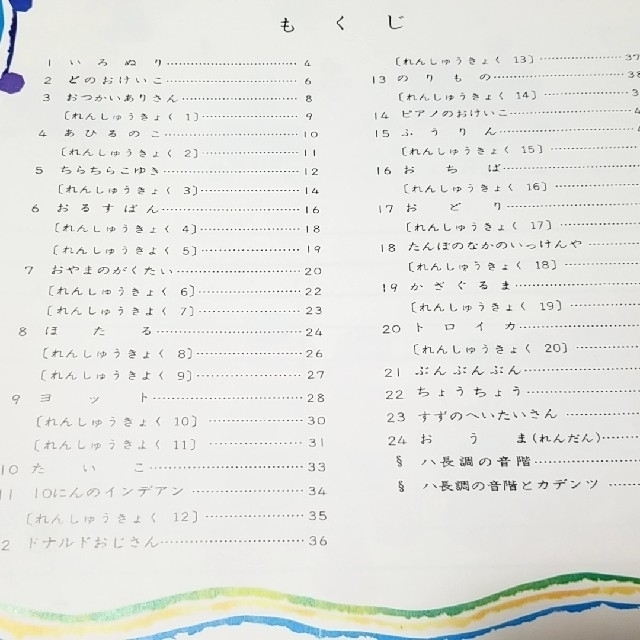 もくじ
1 いろぬり 4
2 どのおけいこ 6
3 おつかいありさん 8
〔れんしゅうきょく 1〕 9
4 あひるのこ 10
〔れんしゅうきょく 2〕 11
5 ちらちらこゆき 12
〔れんしゅうきょく 3〕 14
6 おるすばん 16
〔れんしゅうきょく 4〕 18
〔れんしゅうきょく 5〕 19
7 おやまのがくたい 20
〔れんしゅうきょく 6〕 22
〔れんしゅうきょく 7〕 23
8 ほたる 24
〔れんしゅうきょく 8〕 26
〔れんしゅうきょく 9〕 27
9 ヨット 28
〔れんしゅうきょく 10〕 30
〔れんしゅうきょく 11〕 31
10 たいこ 33
11 10にんのインデアン 34
〔れんしゅうきょく 12〕 35
2 ドナルドおじさん 36
〔れんしゅうきょく 13〕 37
13 のりもの 38
〔れんしゅうきょく 14〕 3
14 ピアノのおけいこ 4
15 ふうりん 4
〔れんしゅうきょく 15〕
16 おちば
〔れんしゅうきょく 16〕
17 おどり
〔れんしゅうきょく 17〕
18 たんぼのなかのいっけんや
〔れんしゅうきょく 18〕
19 かざぐるま
〔れんしゅうきょく 19〕
20 トロイカ
〔れんしゅうきょく 20〕
21 ぶんぶんぶん
22 ちょうちょう
23 すずのへいたいさん
24 おうま(れんだん)
§ ハ長調の音階
§ ハ長調の音階とカデンツ